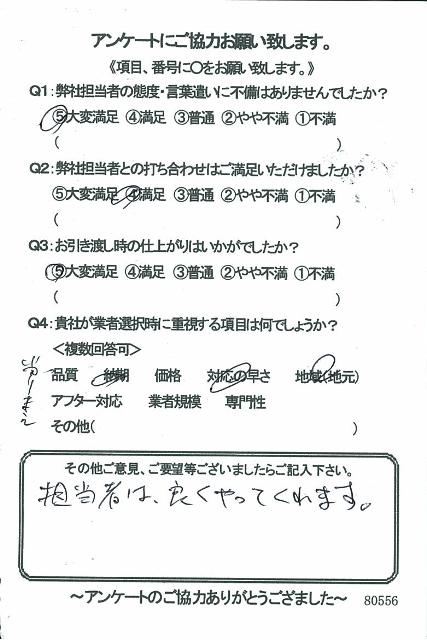 アンケートにご協力お願い致します。
《項目、番号に〇をお願い致します。》
Q1：弊社担当者の態度・言葉遣いに不備はありませんでしたか？
⑤大変満足 ④満足 ③普通 ②やや不満 ①不満
(                    )
Q2：弊社担当者との打ち合わせはご満足いただけましたか？
⑤大変満足 ④満足 ③普通 ②やや不満 ①不満
(                    )
Q3：お引き渡し時の仕上がりはいかがでしたか？
⑤大変満足 ④満足 ③普通 ②やや不満 ①不満
(                    )
Q4：貴社が業者選択時に重視する項目は何でしょうか？
＜複数回答可＞
品質 納期 価格 対応の早さ 地域(地元)
アフター対応 業者規模 専門性
その他(                    )
その他ご意見、ご要望等ございましたらご記入下さい。
担当者は、良くやってくれます。
～アンケートのご協力ありがとうござました～ 80556